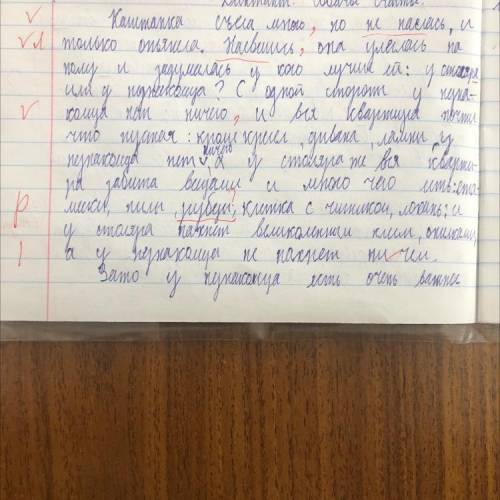 Диктант. Собачье счастье.
Каштанка съела много, но не наелась, и
только опьянела. Наевшись, она улеглась на
полу и задумалась у кого лучше ей: у столяра
или у незнакомца? С одной стороны у незна-
комца нет ничего, и вся квартира почти
что пустая: кроме кресел, дивана, лампы у
незнакомца нет ничего, а у столяра же вся кварти-
ра забита вещами и много чего есть: ста-
мески, пилы рубен, клетка с чижиком, лохань; и
у столяра пахнет великолепно клеем, опилками,
а у незнакомца не пахнет ни чем.
Зато у незнакомца есть очень важное